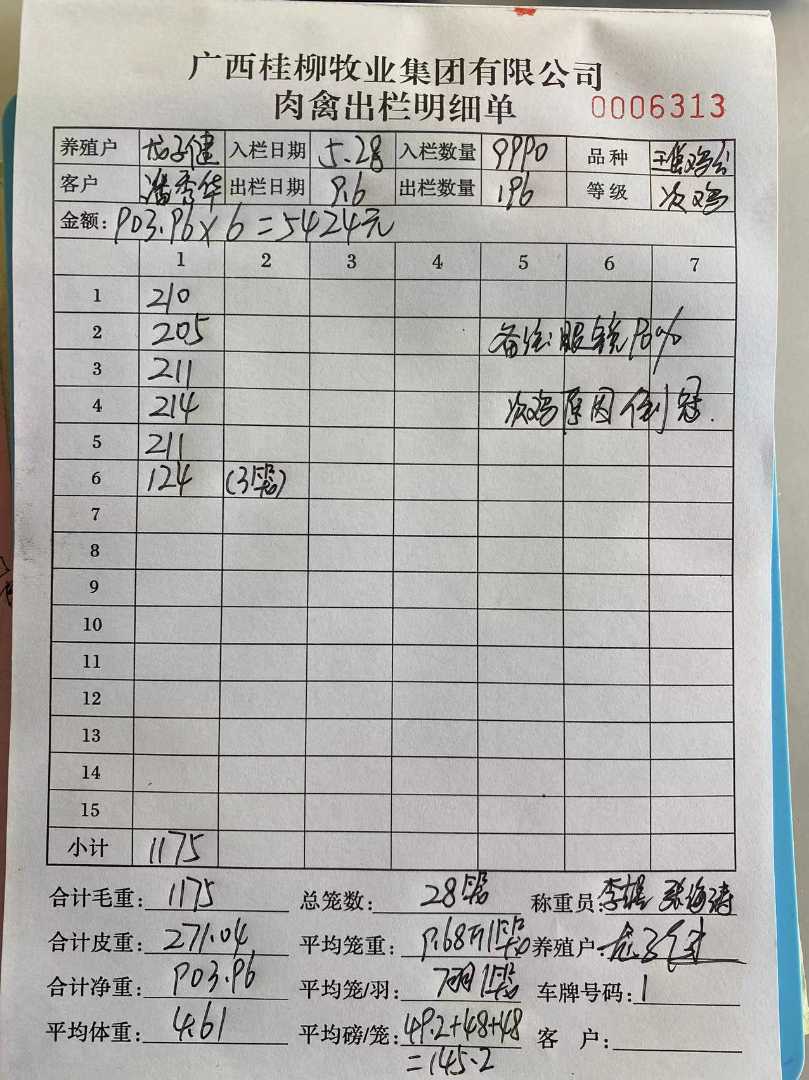 广西桂柳牧业集团有限公司
肉禽出栏明细单 0006313
养殖户 龙子健 入栏日期 5.28 入栏数量 9990 品种
客户 潘秀华 出栏日期 9.6 出栏数量 196 等级 次鸡
金额: 903.96×6=5424元
1 2 3 4 5 6 7
1 210
2 205 备注: 眼镜98%
3 211
4 214 次鸡原因 倒冠.
5 211
6 124 (3笼)
7
8
9
10
11
12
13
14
15
小计 1175
合计毛重: 1175 总笼数: 28笼 称重员: 李雄 张海涛
合计皮重: 271.04 平均笼重: 9.68斤/笼 养殖户: 龙子健
合计净重: 903.96 平均笼/羽: 7羽/笼 车牌号码: 1
平均体重: 4.61 平均磅/笼: 49.2+48+48 客 户:
=145.2